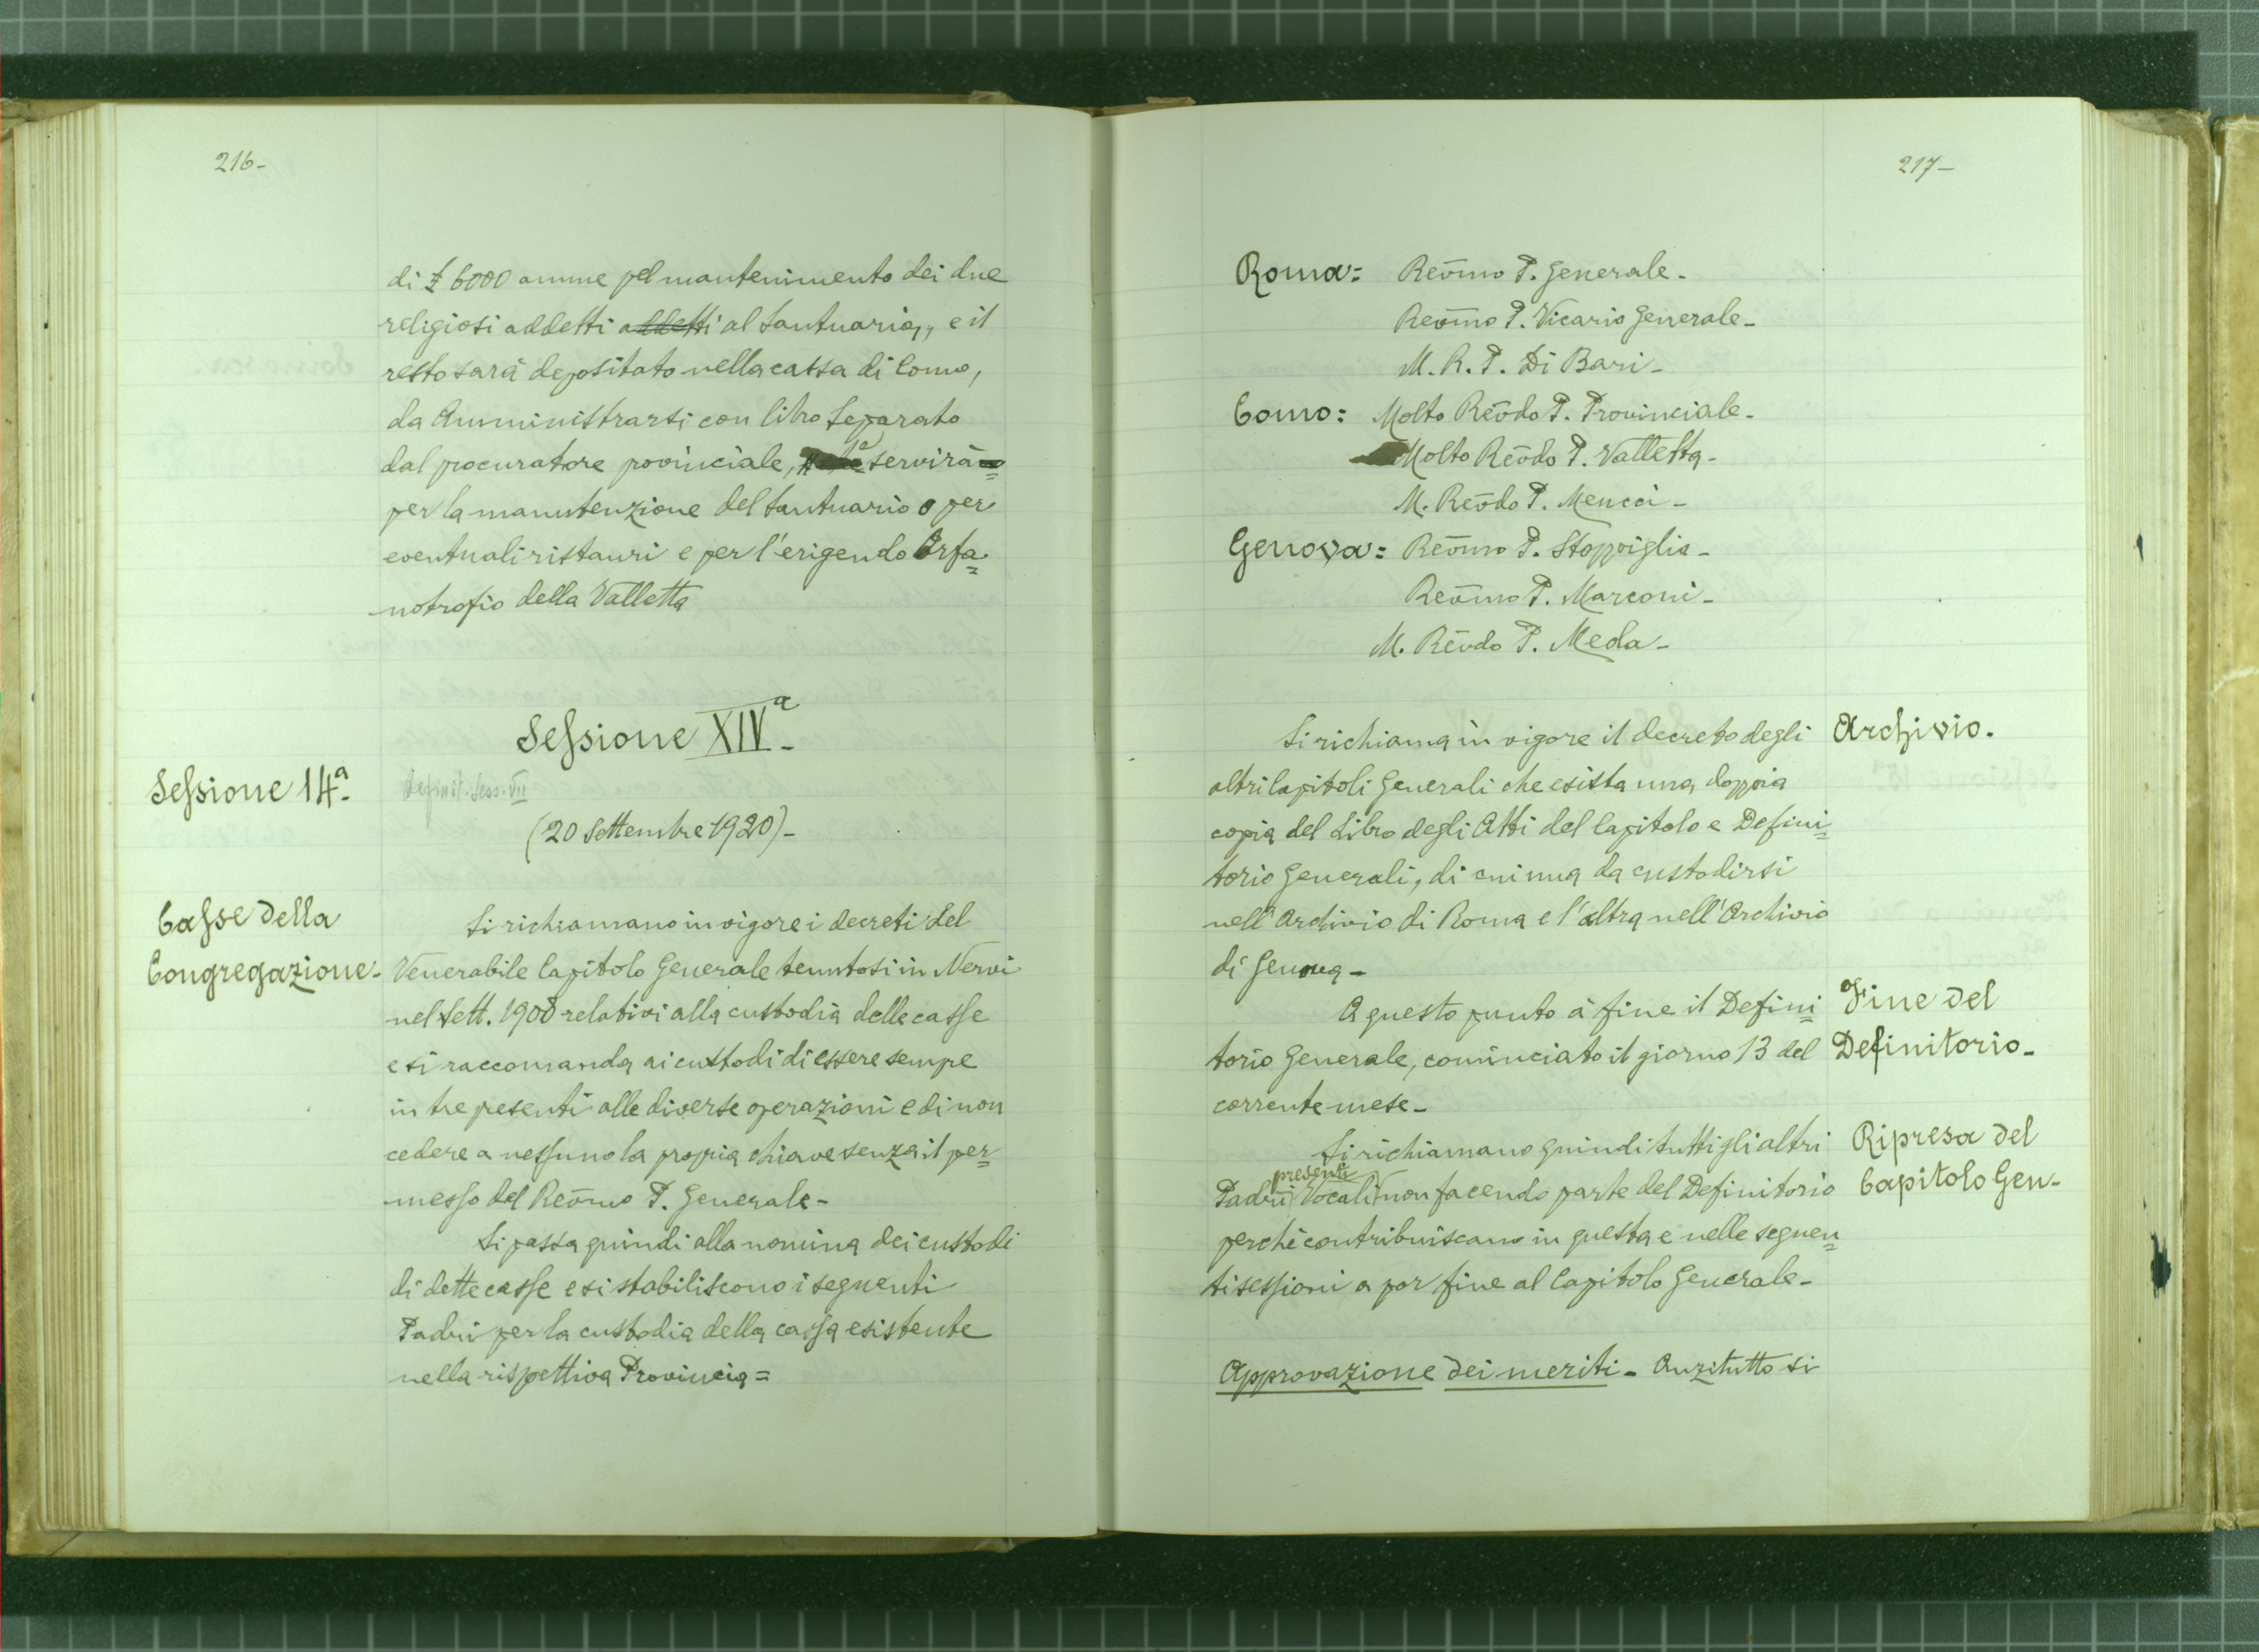 216-
di £ 6000 annue pel mantenimento dei due
religiosi addetti addetti al Santuario, e il
resto sarà depositato nella cassa di Como,
da Amministrarsi con libro separato
dal procuratore provinciale, servirà
per la manutenzione del Santuario o per
eventuali ristauri e per l'erigendo Orfa=
notrofio della Valletta
Sessione XIVª-
Sessione 14ª-
Definit. Sess. VII
(20 Settembre 1920)-
Casse della
Congregazione-
Si richiamano in vigore i decreti del
Venerabile Capitolo Generale tenutosi in Nervi
nel Sett. 1908 relativi alla custodia delle casse
e si raccomanda ai custodi di essere sempre
in tre presenti alle diverse operazioni e di non
cedere a nessuno la propria chiave senza il per=
messo del Reṽmo P. Generale-
Si passa quindi alla nomina dei custodi
di dette casse e si stabiliscono i seguenti
Padri per la custodia della cassa esistente
nella rispettiva Provincia=
217-
Roma= Reṽmo P. Generale-
Reṽmo P. Vicario Generale-
M. R. P. Di Bari-
Como: Molto Reṽdo P. Provinciale-
Molto Reṽdo P. Valletta-
M. Reṽdo P. Mencci-
Genova: Reṽmo P. Stoppiglia-
Reṽmo P. Marconi-
M. Reṽdo P. Meda-
Archivio.
Si richiama in vigore il decreto degli
altri Capitoli Generali che esista una doppia
copia del Libro degli Atti del Capitolo e Defini=
torio Generali, di cui una da custodirsi
nell'Archivio di Roma e l'altra nell'Archivio
di Genova-
Fine del
Definitorio-
A questo punto à fine il Defini=
torio Generale, cominciato il giorno 13 del
corrente mese-
Ripresa del
Capitolo Gen-
Si richiamano quindi tutti gli altri
presenti
Padri Vocali non facendo parte del Definitorio
perchè contribuiscano in questa e nelle seguen=
ti sessioni a por fine al Capitolo Generale-
Approvazione dei meriti- Anzitutto si